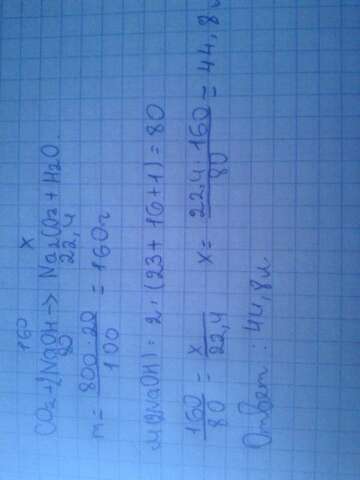 160 x
CO2+2NaOH→ Na2CO3+H2O
80 22,4
m= 800·20/100 = 160г
M(2NaOH): 2·(23+16+1)=80
160/80 = x/22,4 x= 22,4·160/80 = 44,8л
Ответ: 44,8л.